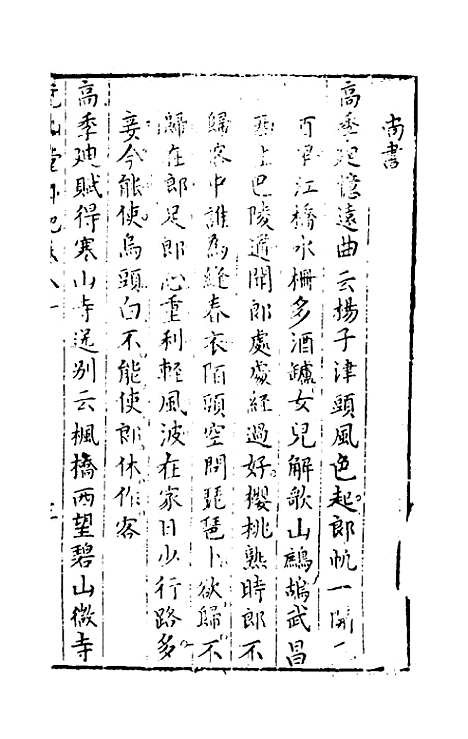 尚書
高季迪憶遠曲云揚子津頭風色起郎帆一開
江橋水柵多酒罏女兒解歌山鷓鴣武昌
上巴陵道聞郎處處經過好櫻桃熟時郎不
歸客中誰為縫春衣陌頭空問琵琶卜欲歸不
歸在郎足郎心重利輕風波在家日少行路多
妾今能使烏頭白不能使郎休作客
高季廸賦得寒山寺送别云楓橋西望碧山微寺
堂